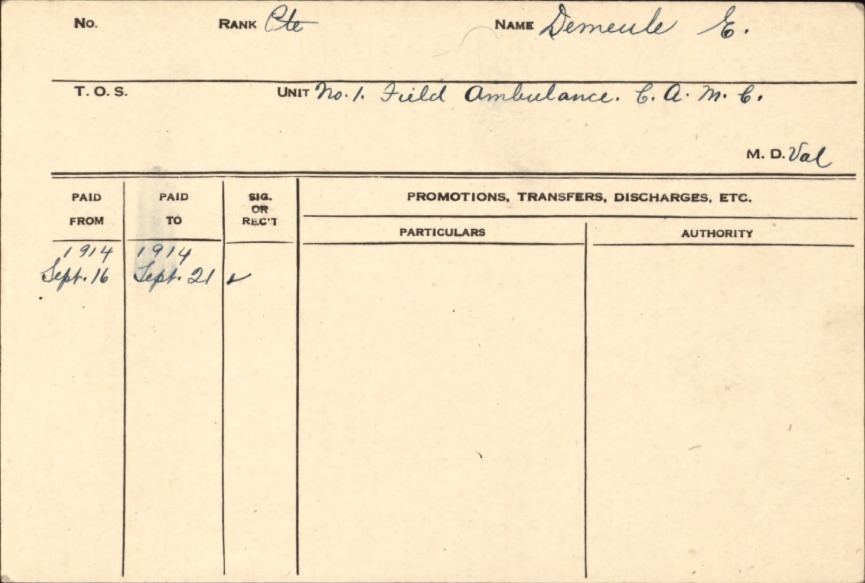 No. RANK Pte NAME Demeule E.
T. O. S. UNIT No. 1. Field Ambulance. C. A. M. C.
M. D. Val
PAID FROM PAID TO SIG. OR REC'T PROMOTIONS, TRANSFERS, DISCHARGES, ETC.
PARTICULARS AUTHORITY
1914 1914
Sept. 16 Sept. 21 ✓